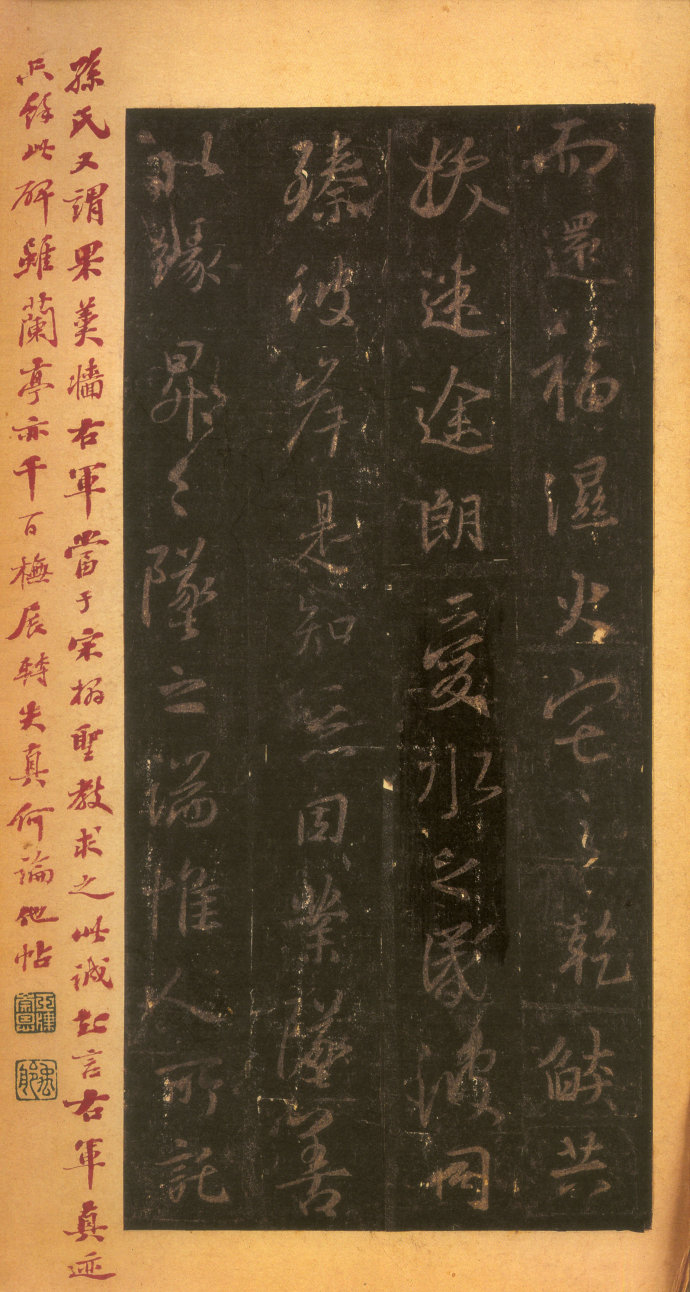 而還福濕火宅之乾㷔共
拔迷途朗愛水之昏波同
臻彼岸是知惡因業墜善
以緣昇昇墜之端惟人所託
孫氏又謂果羹牆右軍當于宋搨聖教求之此誠知言右軍真迹
只餘此碑雖蘭亭亦千百橅展轉失真何論他帖